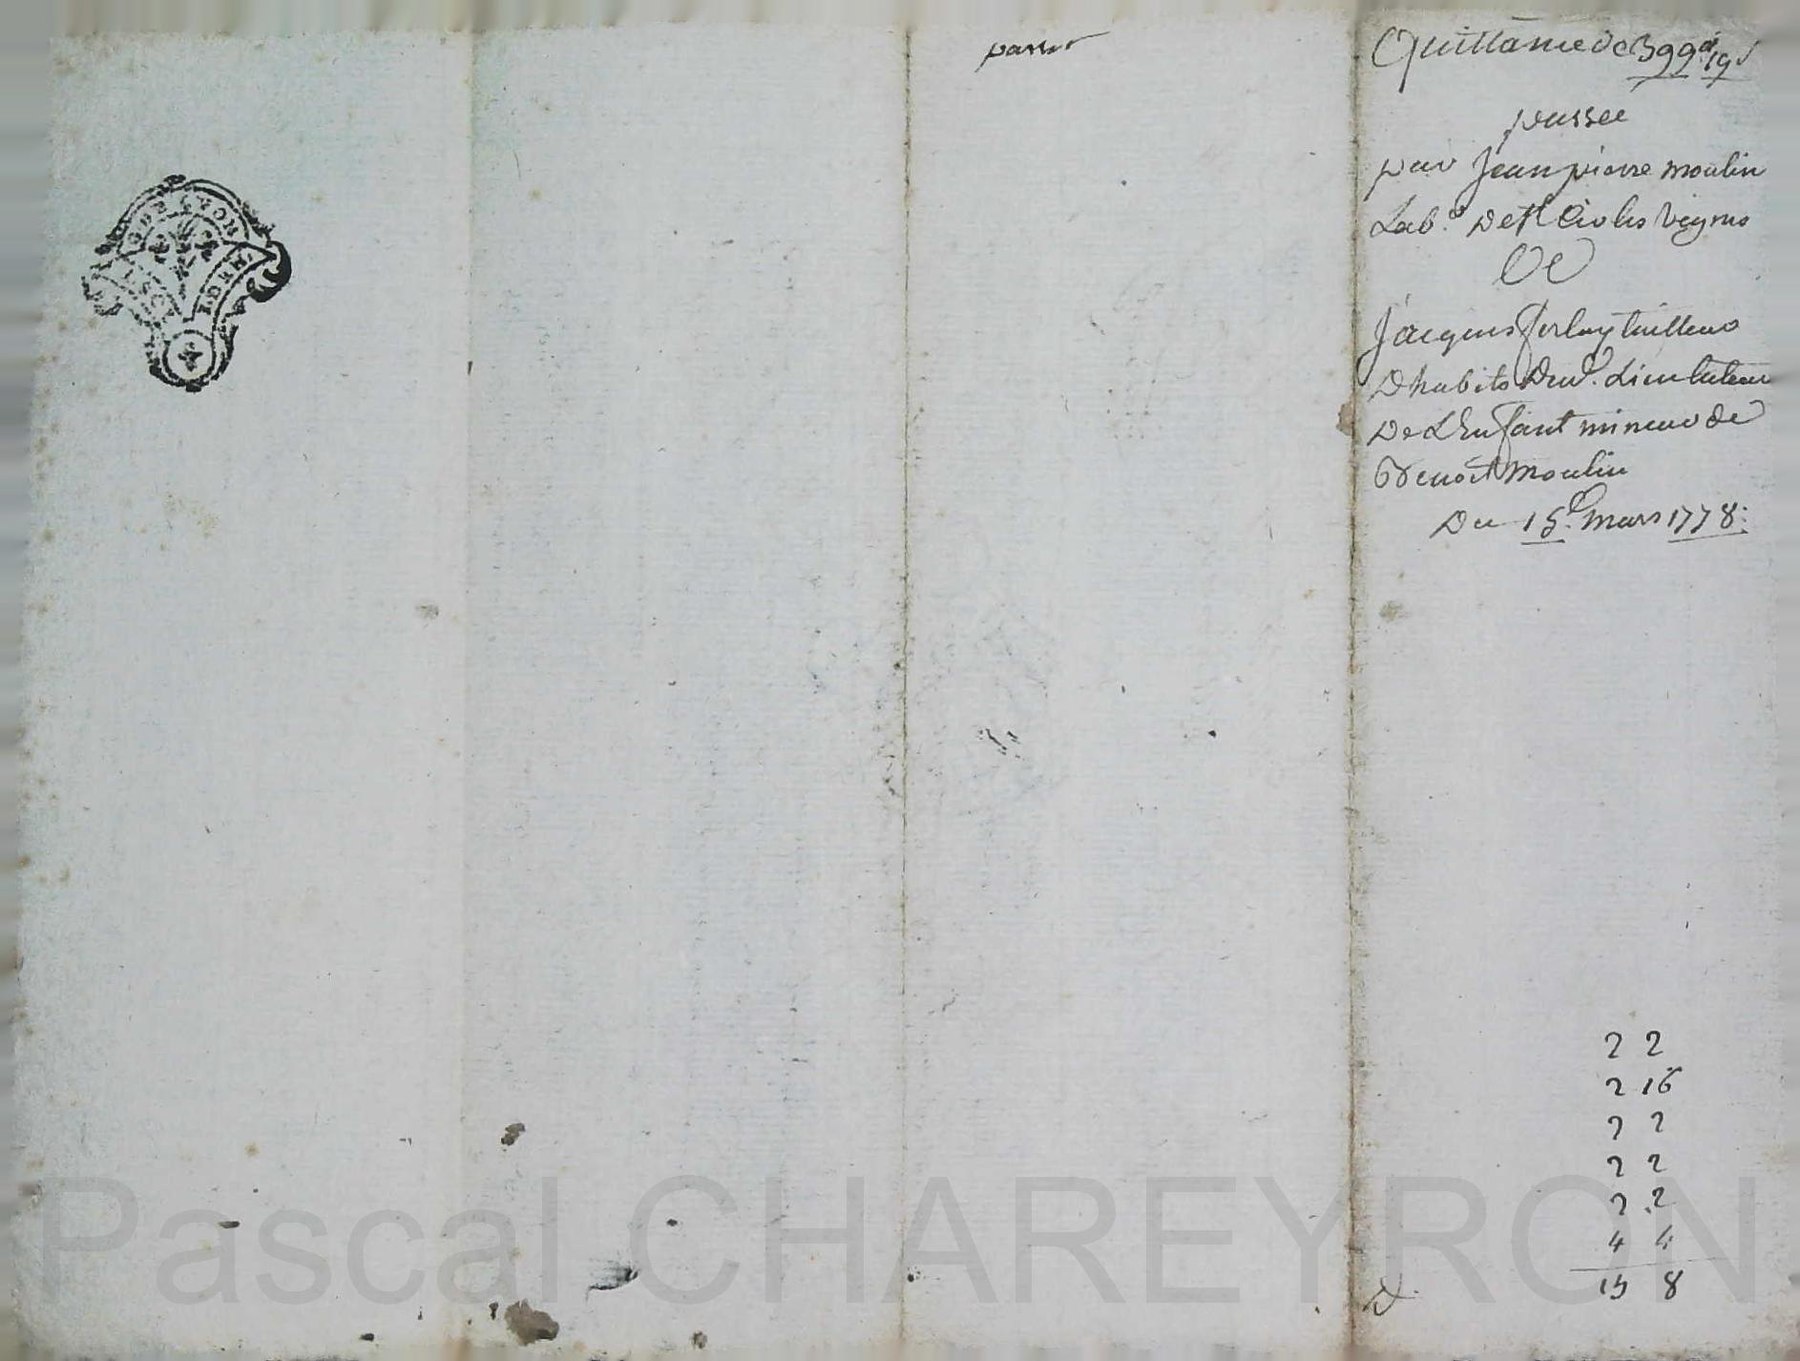 G DE LYON
passer
Quittance de 399# 19 s
passee
par Jean pierre moulin
Lab.r De st
A
Jacques tailleur
D habits Dud. Lieu tuteur
De L'Enfant mineur de
Benoit moulin
Du 15e. mars 1778.
2 2
2 16
2 2
2 2
2 2
4 4
15 8
Pascal CHAREYRON